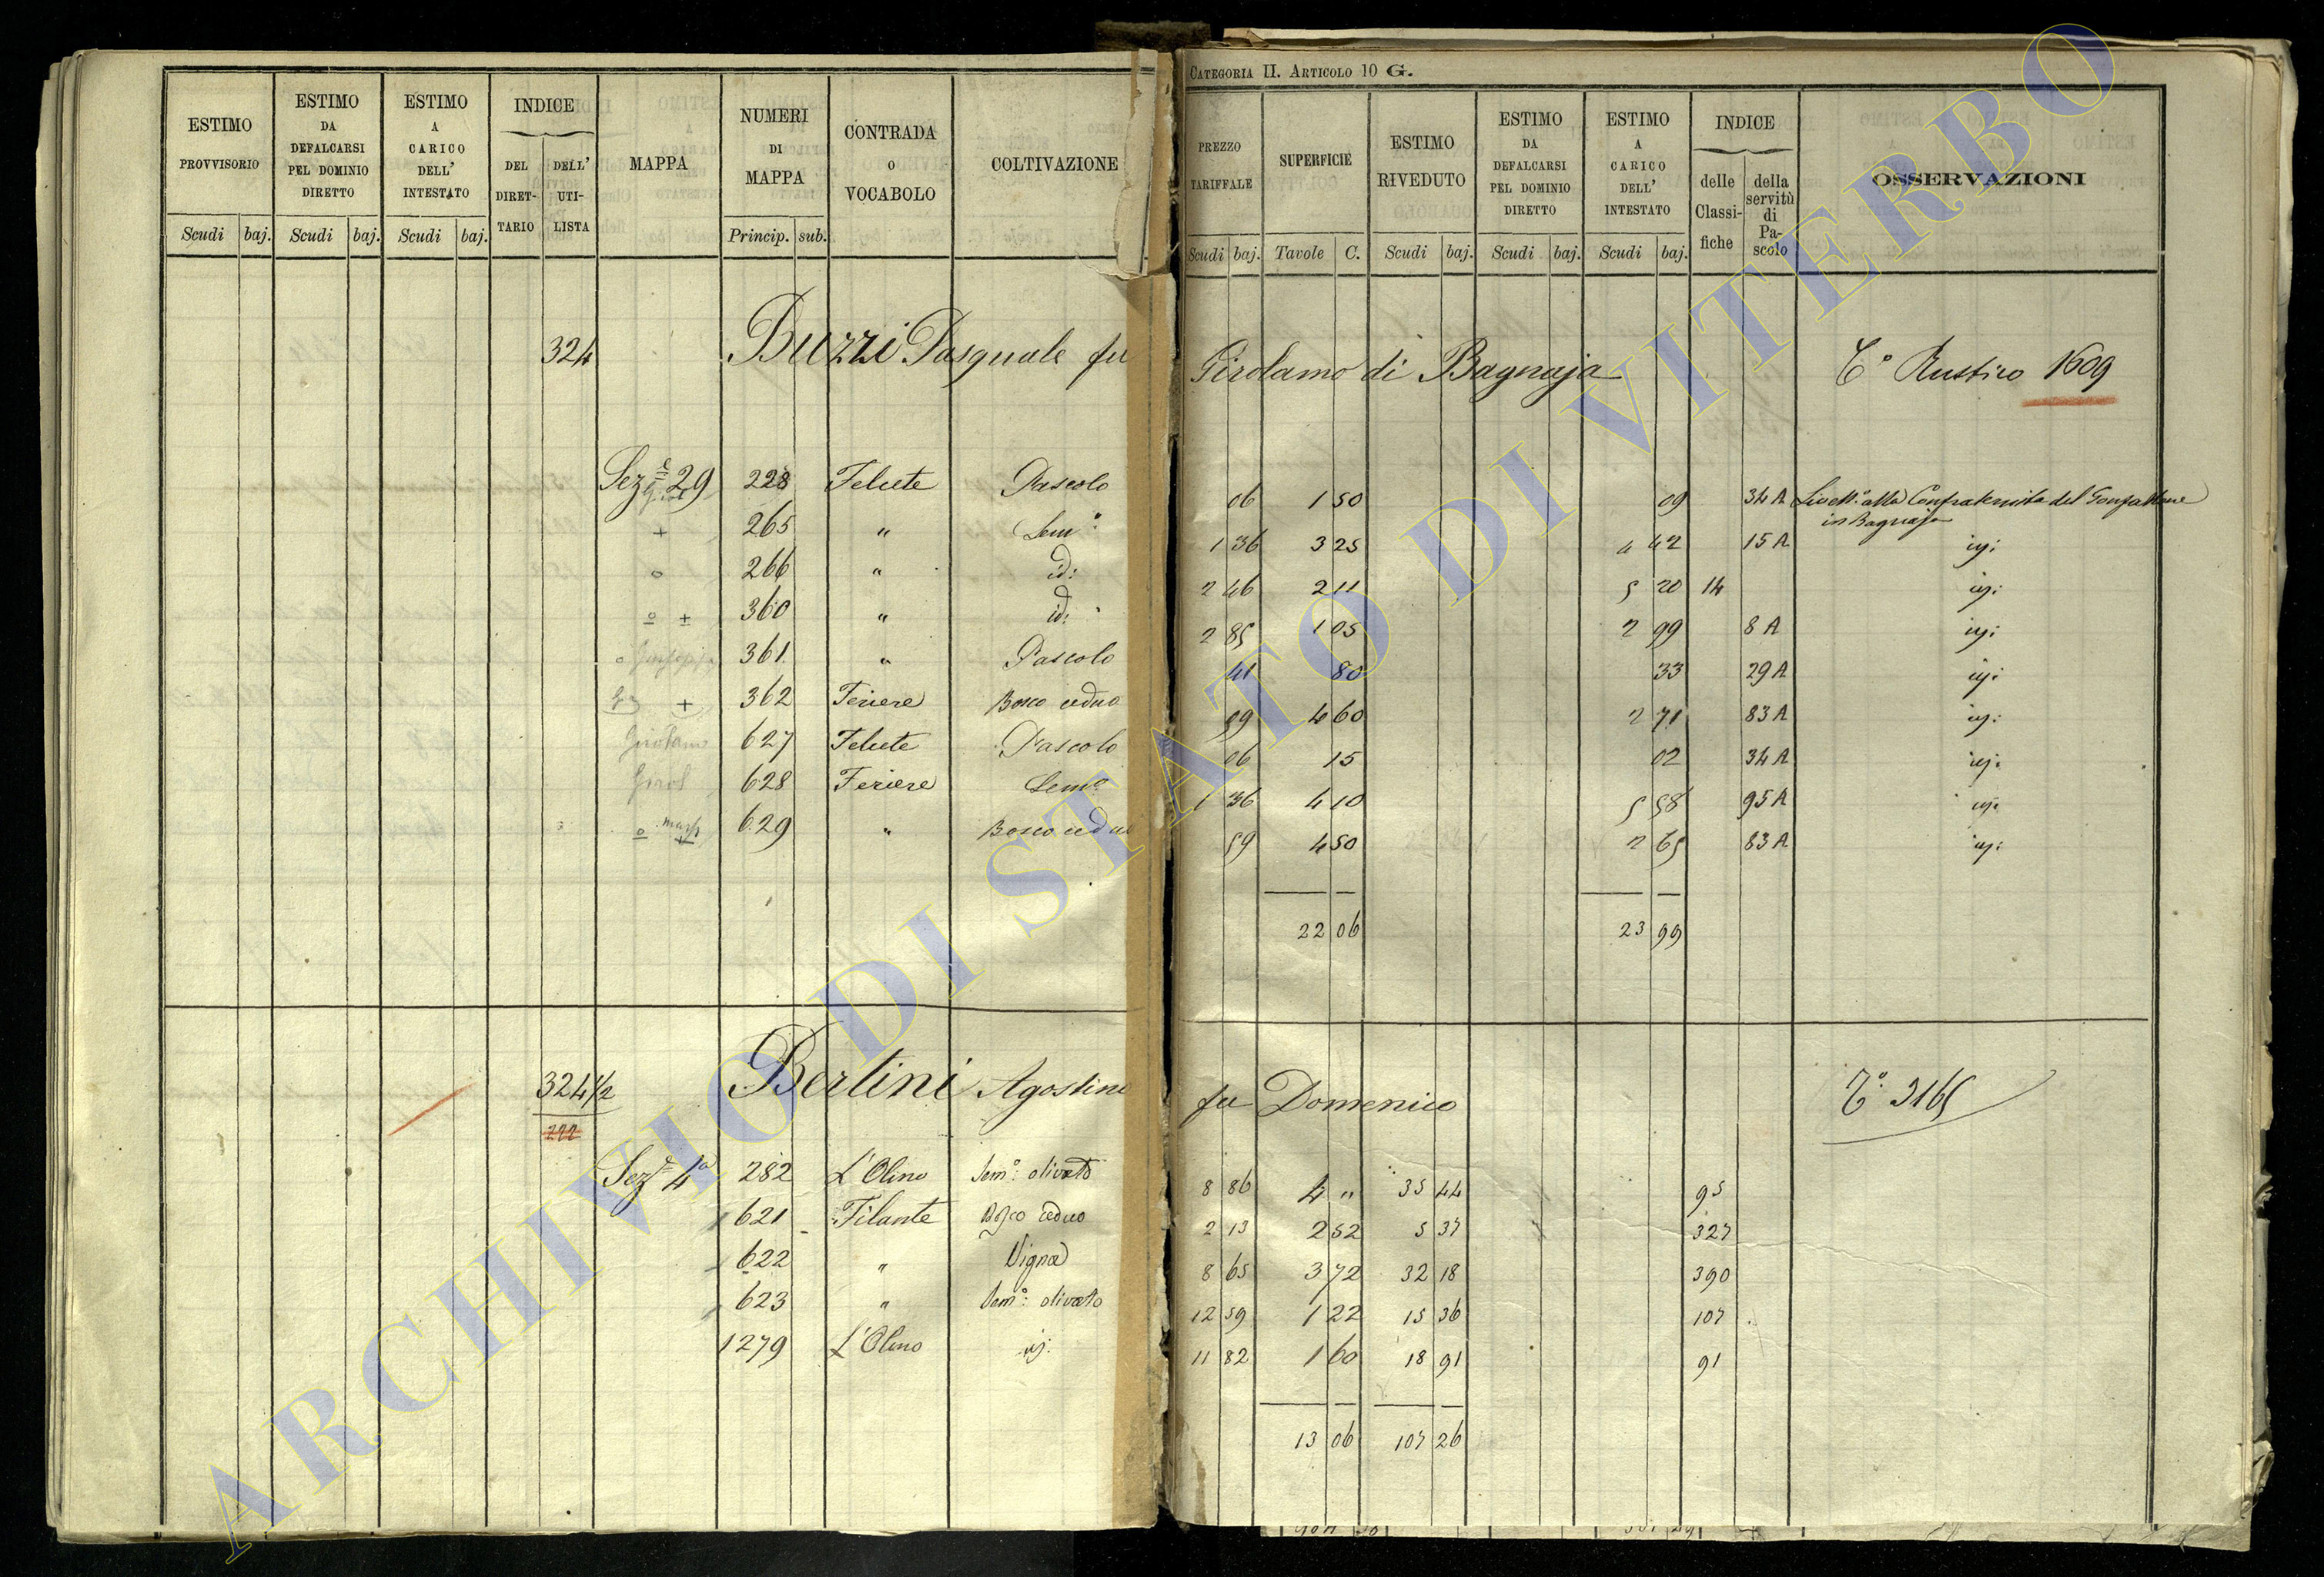 CATEGORIA II. ARTICOLO 10 G.
ESTIMO PROVVISORIO
ESTIMO DA DEFALCARSI PEL DOMINIO DIRETTO
ESTIMO A CARICO DELL' INTESTATO
INDICE
DEL DIRETTARIO
DELL' UTILISTA
MAPPA
NUMERI DI MAPPA
CONTRADA O VOCABOLO
COLTIVAZIONE
PREZZO TARIFFALE
SUPERFICIE
ESTIMO RIVEDUTO
ESTIMO DA DEFALCARSI PEL DOMINIO DIRETTO
ESTIMO A CARICO DELL' INTESTATO
INDICE
delle Classifiche
della servitù di Pascolo
OSSERVAZIONI
Scudi baj. Scudi baj. Scudi baj. Princip. sub. Scudi baj. Tavole C. Scudi baj. Scudi baj. Scudi baj.
324 Buzzi Pasquale fu Girolamo di Bagnaja C° Rustico 1609
Sez.e 29 228 Felcete Pascolo 06 1 50 09 34 A Livell.° alla Confraternita del Gonfalone
in Bagnaja
+ 265 " Sem°: 1 36 3 25 4 42 15 A isj:
o 266 " id: 2 46 2 11 5 20 14 isj:
o + 360 " id: 2 85 1 05 2 99 8 A isj:
o Giuseppe 361 " Pascolo 41 80 33 29 A isj:
+ 362 Feriere Bosco ceduo 59 4 60 2 71 83 A isj:
Girolamo 627 Felcete Pascolo 06 15 02 34 A isj:
Girol 628 Feriere Sem° 1 36 4 10 5 58 95 A isj:
o + 629 " Bosco ceduo 59 4 50 2 65 83 A isj:
22 06 23 99
324 1/2 Bertini Agostino fu Domenico C°: 3165
222
Sez.e 4a 282 L'Olmo Sem°: olivato 8 86 4 " 35 44 95
621 Filante Bosco ceduo 2 13 2 52 5 37 327
622 " Vigna 8 65 3 72 32 18 390
623 " Sem°: olivato 12 59 1 22 15 36 107
1279 L'Olmo isj: 11 82 1 60 18 91 91
13 06 107 26
ARCHIVIO DI STATO DI VITERBO